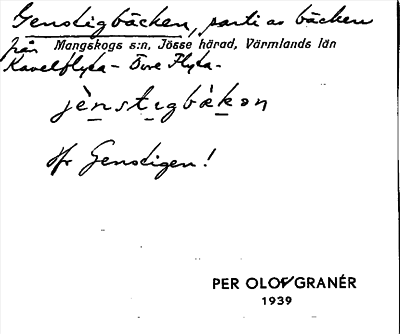 Genstigbäcken, parti av bäcken
från Mangskogs s:n, Jösse härad, Värmlands län
Kavelflyta – Övre Flyta.
jènstigbækən
Jfr Genstigen!
PER OLOF GRANÉR
1939